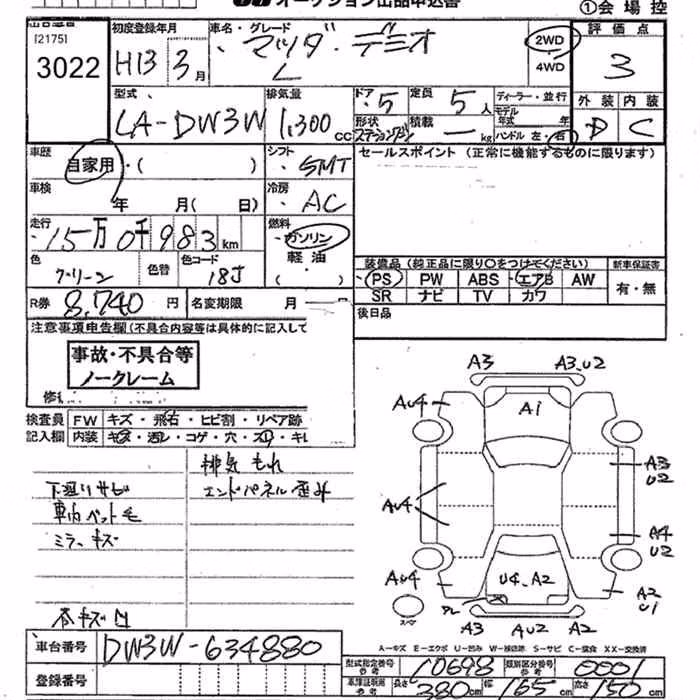 オークション出品申込書
①会場控
出品番号 初度登録年月 車名・グレード 評価点
[2175]
3022 H13 3月 マツダ・デミオ L 2WD・4WD 3
型式 排気量 ドア 定員 ディーラー・並行 外装 内装
LA-DW3W 1,300CC 5 5人 モデル年式 年 D C
形状 ステーションワゴン 積載 ー kg ハンドル 左・右
車歴 シフト セールスポイント (正常に機能するものに限ります)
自家用・( ) 5MT
車検 冷房
年 月( 日) AC
走行 燃料
15万0千983km ガソリン
軽油
( )
色 色替 色コード 装備品 (純正品に限り○をつけてください) 新車保証書
グリーン 18J PS PW ABS エアB AW 有・無
SR ナビ TV カワ
R券 8,740円 名変期限 月
後日品
注意事項申告欄(不具合内容等は具体的に記入して
事故・不具合等
ノークレーム
検査員 FW キズ・飛石・ヒビ割・リペア跡
記入欄 内装 キズ・汚レ・コゲ・穴・スレ・キレ
排気もれ
下廻りサビ エンドパネル歪み
車内ペット毛
ミラーキズ
A3 A3.U2
AU4 A1
A3 U2
AU4
A4 U2
AU4 U4.A2 A2 U1
スペア PL
A3 AU2 A2
車台番号 DW3W-634880
A-キズ E-エクボ U-凹み W-補修跡 S-サビ C-腐食 XX-交換済
登録番号
型式指定番号 参考 10698 類別区分番号 参考 0001
車庫証明用 参考 長さ 380cm 幅 165cm 高さ 150cm